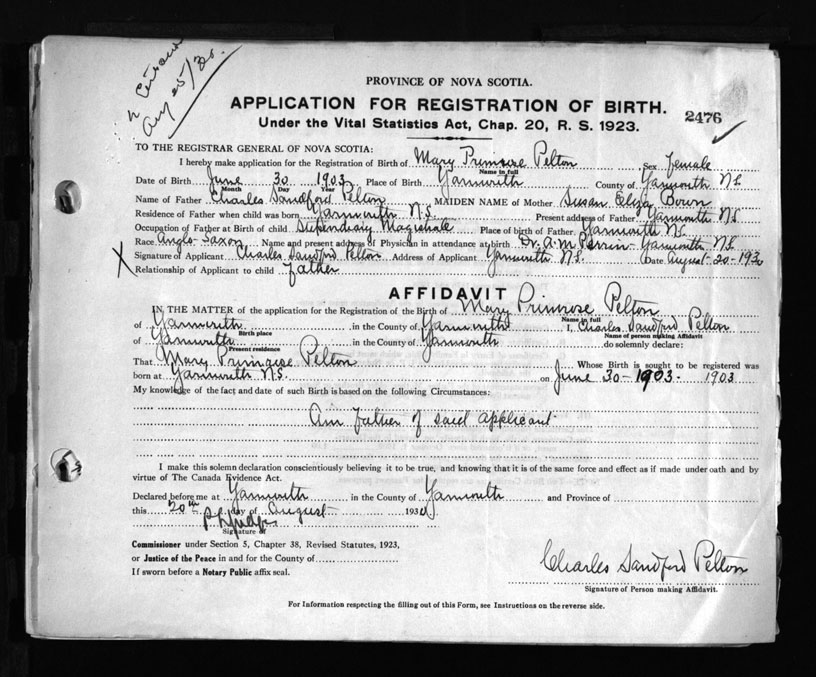 Aug 25/30.
PROVINCE OF NOVA SCOTIA.
APPLICATION FOR REGISTRATION OF BIRTH.
2476
Under the Vital Statistics Act, Chap. 20, R. S. 1923.
TO THE REGISTRAR GENERAL OF NOVA SCOTIA:
I hereby make application for the Registration of Birth of Mary Primrose Pelton Sex female
Name in full
Date of Birth June 30 1903 Place of Birth Yarmouth County of Yarmouth N.S.
Month Day Year
Name of Father Charles Sandford Pelton MAIDEN NAME of Mother Susan Eliza Bown
Residence of Father when child was born Yarmouth N.S. Present address of Father Yarmouth N.S.
Occupation of Father at Birth of child Stipendiary Magistrate Place of birth of Father Yarmouth N.S.
Race Anglo-Saxon Name and present address of Physician in attendance at birth Dr. A. M. Perrin Yarmouth N.S.
Signature of Applicant Charles Sandford Pelton Address of Applicant Yarmouth N.S. Date August-20-1930
X Relationship of Applicant to child father
AFFIDAVIT
IN THE MATTER of the application for the Registration of the Birth of Mary Primrose Pelton
Name in full
of Yarmouth in the County of Yarmouth I, Charles Sandford Pelton
Birth place Name of person making Affidavit
of Yarmouth in the County of Yarmouth do solemnly declare:
Present residence
That Mary Primrose Pelton Whose Birth is sought to be registered was
born at Yarmouth N.S. on June 30-1903- 1903
My knowledge of the fact and date of such Birth is based on the following Circumstances:
Am father of said applicant
I make this solemn declaration conscientiously believing it to be true, and knowing that it is of the same force and effect as if made under oath and by
virtue of The Canada Evidence Act.
Declared before me at Yarmouth in the County of Yarmouth and Province of
this 20th day of August 1930
Signature of
Commissioner under Section 5, Chapter 38, Revised Statutes, 1923,
or Justice of the Peace in and for the County of
If sworn before a Notary Public affix seal.
Charles Sandford Pelton
Signature of Person making Affidavit.
For Information respecting the filling out of this Form, see Instructions on the reverse side.